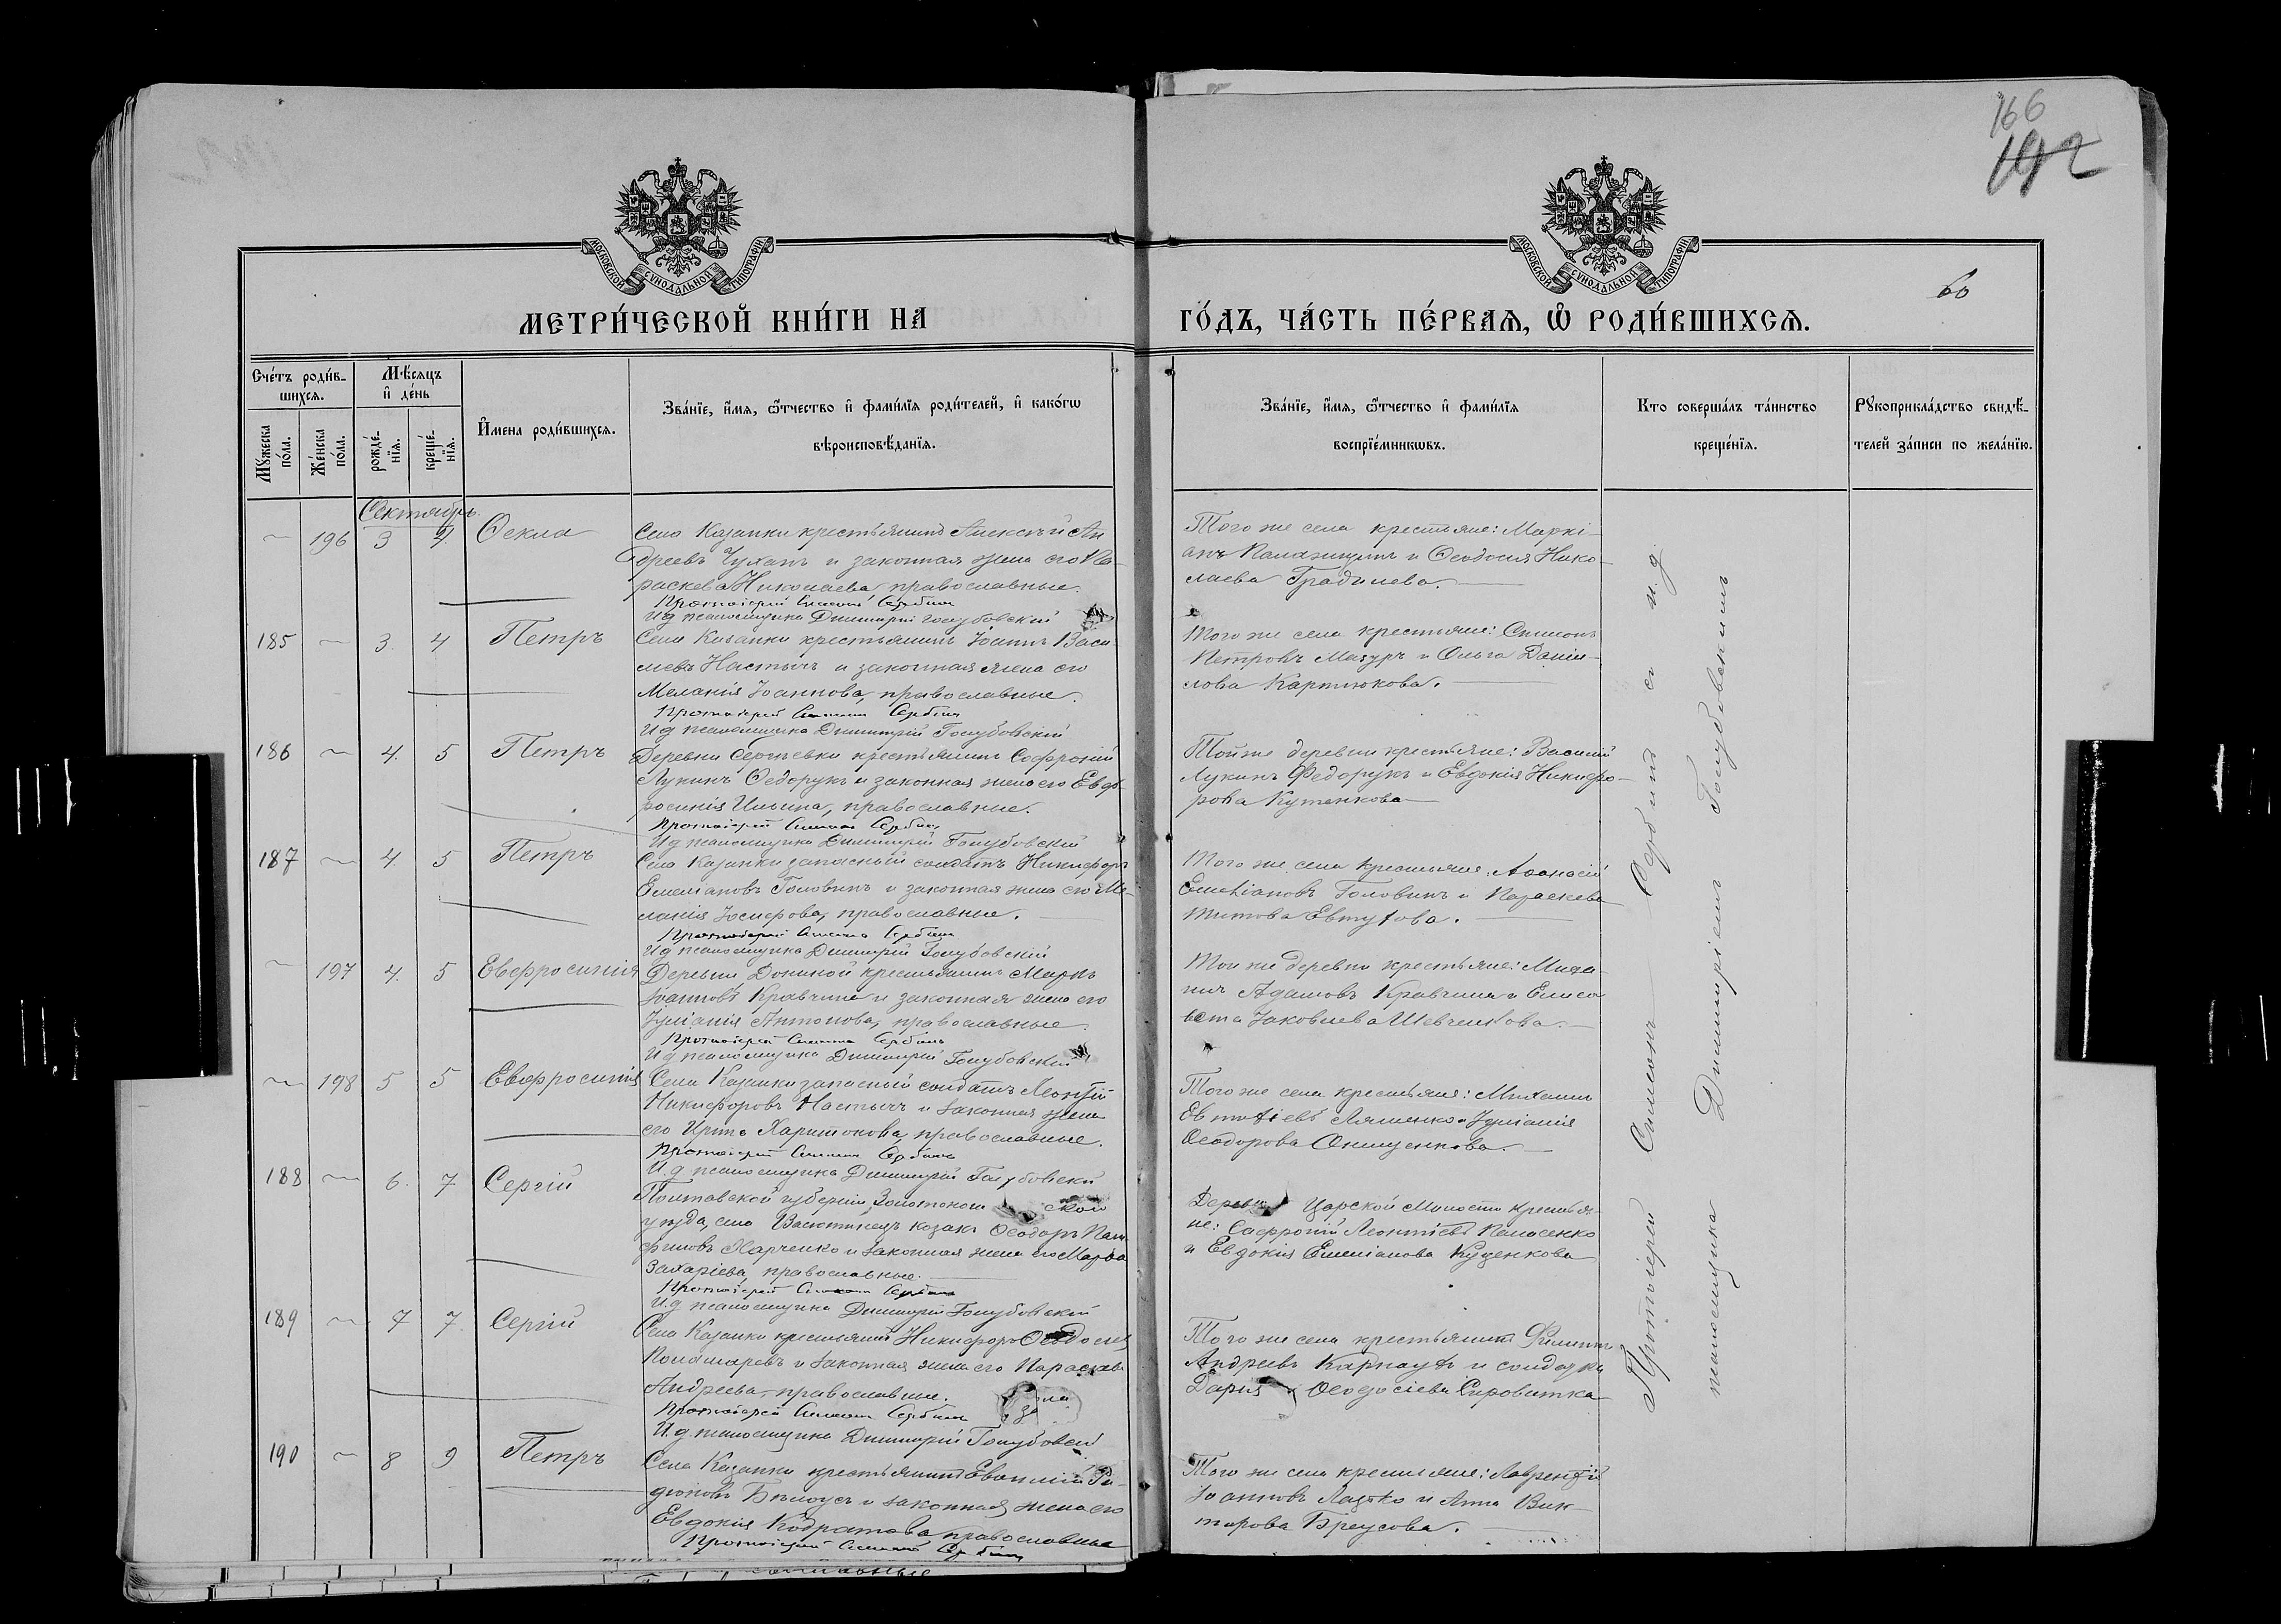 166
192
60
МОСКОВСКОЙ СУНОДАЛЬНОЙ ТИПОГРАФІИ
МОСКОВСКОЙ СУНОДАЛЬНОЙ ТИПОГРАФІИ
МЕТРИ́ЧЕСКОЙ КНИ́ГИ НА ГО́ДЪ, ЧА́СТЬ ПЕ́РВАѦ, Ѡ҆ РОДИ́ВШИХСѦ.
Сче́тъ роди́вшихсѧ.
Мꙋ́жеска по́ла.
Же́нска по́ла.
Мѣ́сѧцъ и҆ де́нь
рожде́нїѧ.
креще́нїѧ.
И҆мена роди́вшихсѧ.
Зва́нїе, и҆́мѧ, ѻ҆́тчество и҆ фами́лїѧ роди́телей, и҆ како́гѡ вѣроисповѣ́данїѧ.
Зва́нїе, и҆́мѧ, ѻ҆́тчество и҆ фами́лїѧ воспрїе́мникѡвъ.
Кто соверша́лъ та́инство креще́нїѧ.
Рꙋкоприкла́дство свидѣ́телей за́писи по жела́нїю.
Сентябрь
196 3 4 Ѳекла
Села Казанки крестьянинъ Алексѣй Ан
дреевъ Чуханъ и законная жена его Па-
раскева Николаева, православные.
Протоіерей Симеонъ Сербинъ
И д псаломщика Димитрій Голубовскій
Того же села крестьяне: Маркі-
анъ и Ѳеодосія Нико-
лаева Градилева.
185 3 4 Петръ
Села Казанки крестьянинъ Іоаннъ Васи-
лиевъ Настычъ и законная жена его
Меланія Іоаннова, православные.
Протоіерей Симеонъ Сербинъ
И д псаломщика Димитрій Голубовскій
Того же села крестьяне: Симеонъ
Петровъ Мазуръ и Ольга Даніи-
лова Картюкова.
186 4 5 Петръ
Деревни Сергѣевки крестьянинъ Софроній
Лукинъ Ѳедорукъ и законная жена его Евф-
росинія Ильина, православные.
Протоіерей Симеонъ Сербинъ
И д псаломщика Димитрій Голубовскій
Той же деревни крестьяне: Василій
Лукинъ Федорукъ и Евдокія Никифо-
рова Кутенкова
187 4 5 Петръ
Села Казанки запасный солдатъ Никифоръ
Емеліановъ Головинъ и законная жена его Ме-
ланія Іосифова, православные.
Протоіерей Симеонъ Сербинъ
И д псаломщика Димитрій Голубовскій
Того же села крестьяне: Аѳанасій
Емеліановъ Головинъ и Параскева
Титова Евтухова.
197 4 5 Евфросинія
Деревни Дониной крестьянинъ Маркъ
Іоанновъ Кравчина и законная жена его
Іуліанія Антонова, православные
Протоіерей Симеонъ Сербинъ
И д псаломщика Димитрій Голубовскій
Той же деревни крестьяне: Миха-
илъ Адамовъ Кравчина и Елиса-
вета Іаковлева Шевченкова.
198 5 5 Евфросинія
Села Казанки запасный солдатъ Леонтій
Никифоровъ Настычъ и законная жена
его Ирина Харитонова, православные.
Протоіерей Симеонъ Сербинъ
И.д псаломщика Димитрій Голубовскій
Того же села крестьяне: Михаилъ
Евтихіевъ Ляшенко и Іуліанія
Ѳеодорова Онищенкова.
188 6 7 Сергій
Полтавской губерніи, Золотонош ской
уѣзда, села Васютинецъ козакъ Ѳеодоръ Пам-
филовъ Харченко и законная жена его Марѳа
Захаріева, православные.
Протоіерей Симеонъ Сербинъ
И.д псаломщика Димитрій Голубовскій
Деревни Царской Милости крестья-
не: Сафроній Леонтіевъ Панасенко
и Евдокія Емеліанова Куценкова
189 7 7 Сергій
Села Казанки крестьянинъ Никифоръ
Пономаревъ и законная жена его Параскева
Андреева, православные.
Протоіерей Симеонъ Сербинъ
И.д псаломщика Димитрій Голубовскій
Того же села крестьянинъ Филиппъ
Андреевъ Карнаухъ и солдатка
Дарія Ѳеодосіева Сироватка
190 8 9 Петръ
Села Казанки крестьянинъ Евѳимій Ро-
діоновъ Бѣлоусъ и законная жена его
Евдокія Кодратова православные
Протоіерей Симеонъ Сербинъ
Того же села крестьяне: Лаврентій
Іоанновъ Лазько и Анна Вик-
торова Бреусова.
Протоіерей Симеонъ Сербинъ съ и.д.
псаломщика Димитріемъ Голубовскимъ